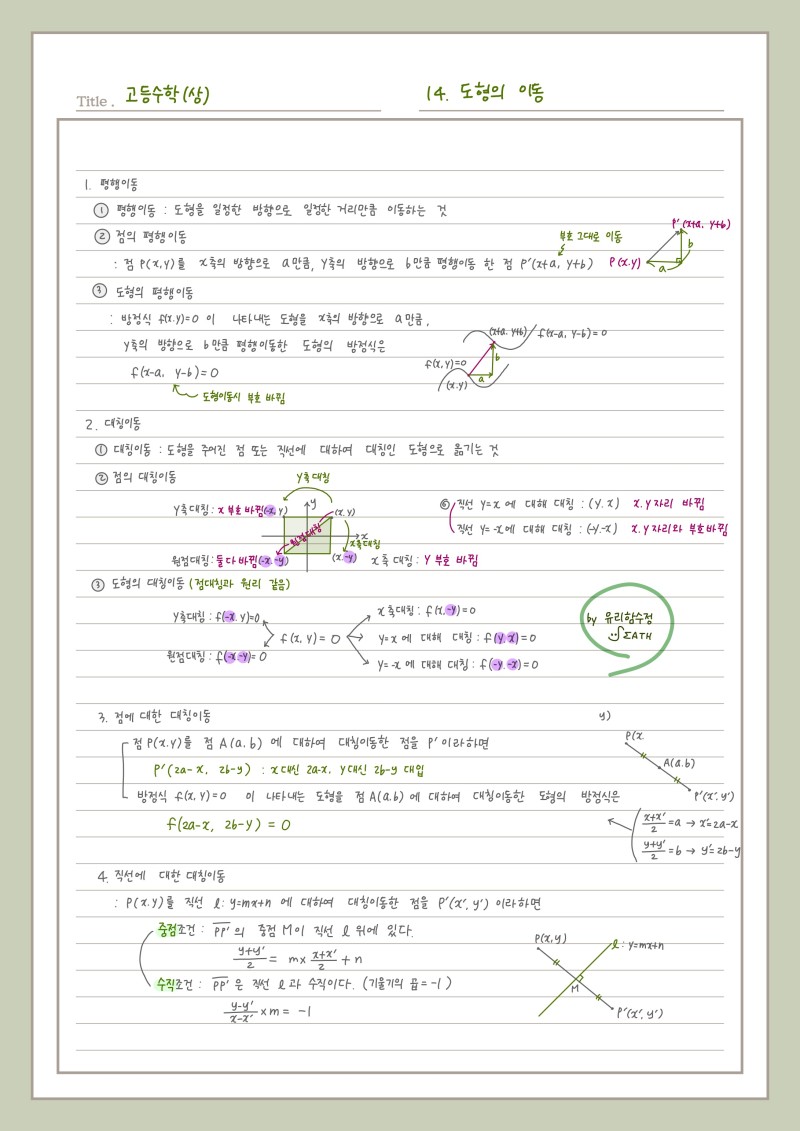 Title. 고등수학(상)
14. 도형의 이동
1. 평행이동
① 평행이동 : 도형을 일정한 방향으로 일정한 거리만큼 이동하는 것
② 점의 평행이동
부호 그대로 이동
: 점 P(x,y)를 x축의 방향으로 a만큼, y축의 방향으로 b만큼 평행이동 한 점 P'(x+a, y+b)
P'(x+a, y+b)
P(x.y)
a
b
③ 도형의 평행이동
: 방정식 f(x.y)=0 이 나타내는 도형을 x축의 방향으로 a만큼,
y축의 방향으로 b만큼 평행이동한 도형의 방정식은
f(x-a, y-b)=0
도형이동시 부호 바뀜
(x+a, y+b)
f(x-a, y-b)=0
f(x,y)=0
(x.y)
a
b
2. 대칭이동
① 대칭이동 : 도형을 주어진 점 또는 직선에 대하여 대칭인 도형으로 옮기는 것
② 점의 대칭이동
y축 대칭
y축대칭 : x 부호 바뀜(-x, y)
y
(x, y)
x
원점대칭
x축대칭
원점대칭 : 둘 다 바뀜(-x -y)
(x.-y)
x축 대칭 : y 부호 바뀜
⑥ 직선 y=x 에 대해 대칭 : (y.x) x.y 자리 바뀜
직선 y=-x에 대해 대칭 : (-y.-x) x.y 자리와 부호 바뀜
③ 도형의 대칭이동 (점대칭과 원리 같음)
y축대칭 : f(-x.y)=0
원점대칭 : f(-x -y)=0
f(x, y) = 0
x축대칭 : f(x,-y)=0
y=x 에 대해 대칭 : f(y,x)=0
y=-x 에 대해 대칭 : f(-y -x)=0
by 유리함수정
ΣATH
3. 점에 대한 대칭이동
점 P(x.y)를 점 A(a.b) 에 대하여 대칭이동한 점을 P' 이라하면
P'(2a-x, 2b-y) : x대신 2a-x, y대신 2b-y 대입
방정식 f(x,y)=0 이 나타내는 도형을 점 A(a.b)에 대하여 대칭이동한 도형의 방정식은
f(2a-x, 2b-y) = 0
y)
P(x
A(a.b)
P'(x'.y')
(x+x')/2 = a → x'=2a-x
(y+y')/2 = b → y'=2b-y
4. 직선에 대한 대칭이동
: P(x.y)를 직선 l : y=mx+n 에 대하여 대칭이동한 점을 P'(x', y') 이라하면
중점조건 : PP' 의 중점 M이 직선 l 위에 있다.
(y+y')/2 = m×(x+x')/2 + n
수직조건 : PP' 은 직선 l 과 수직이다. (기울기의 곱=-1)
(y-y')/(x-x') × m = -1
P(x,y)
l : y=mx+n
M
P'(x',y')